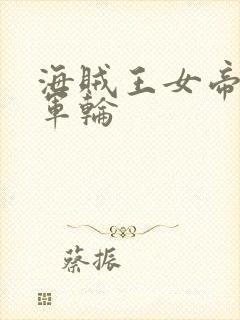 海賊王女帝
軍輪
蔡振